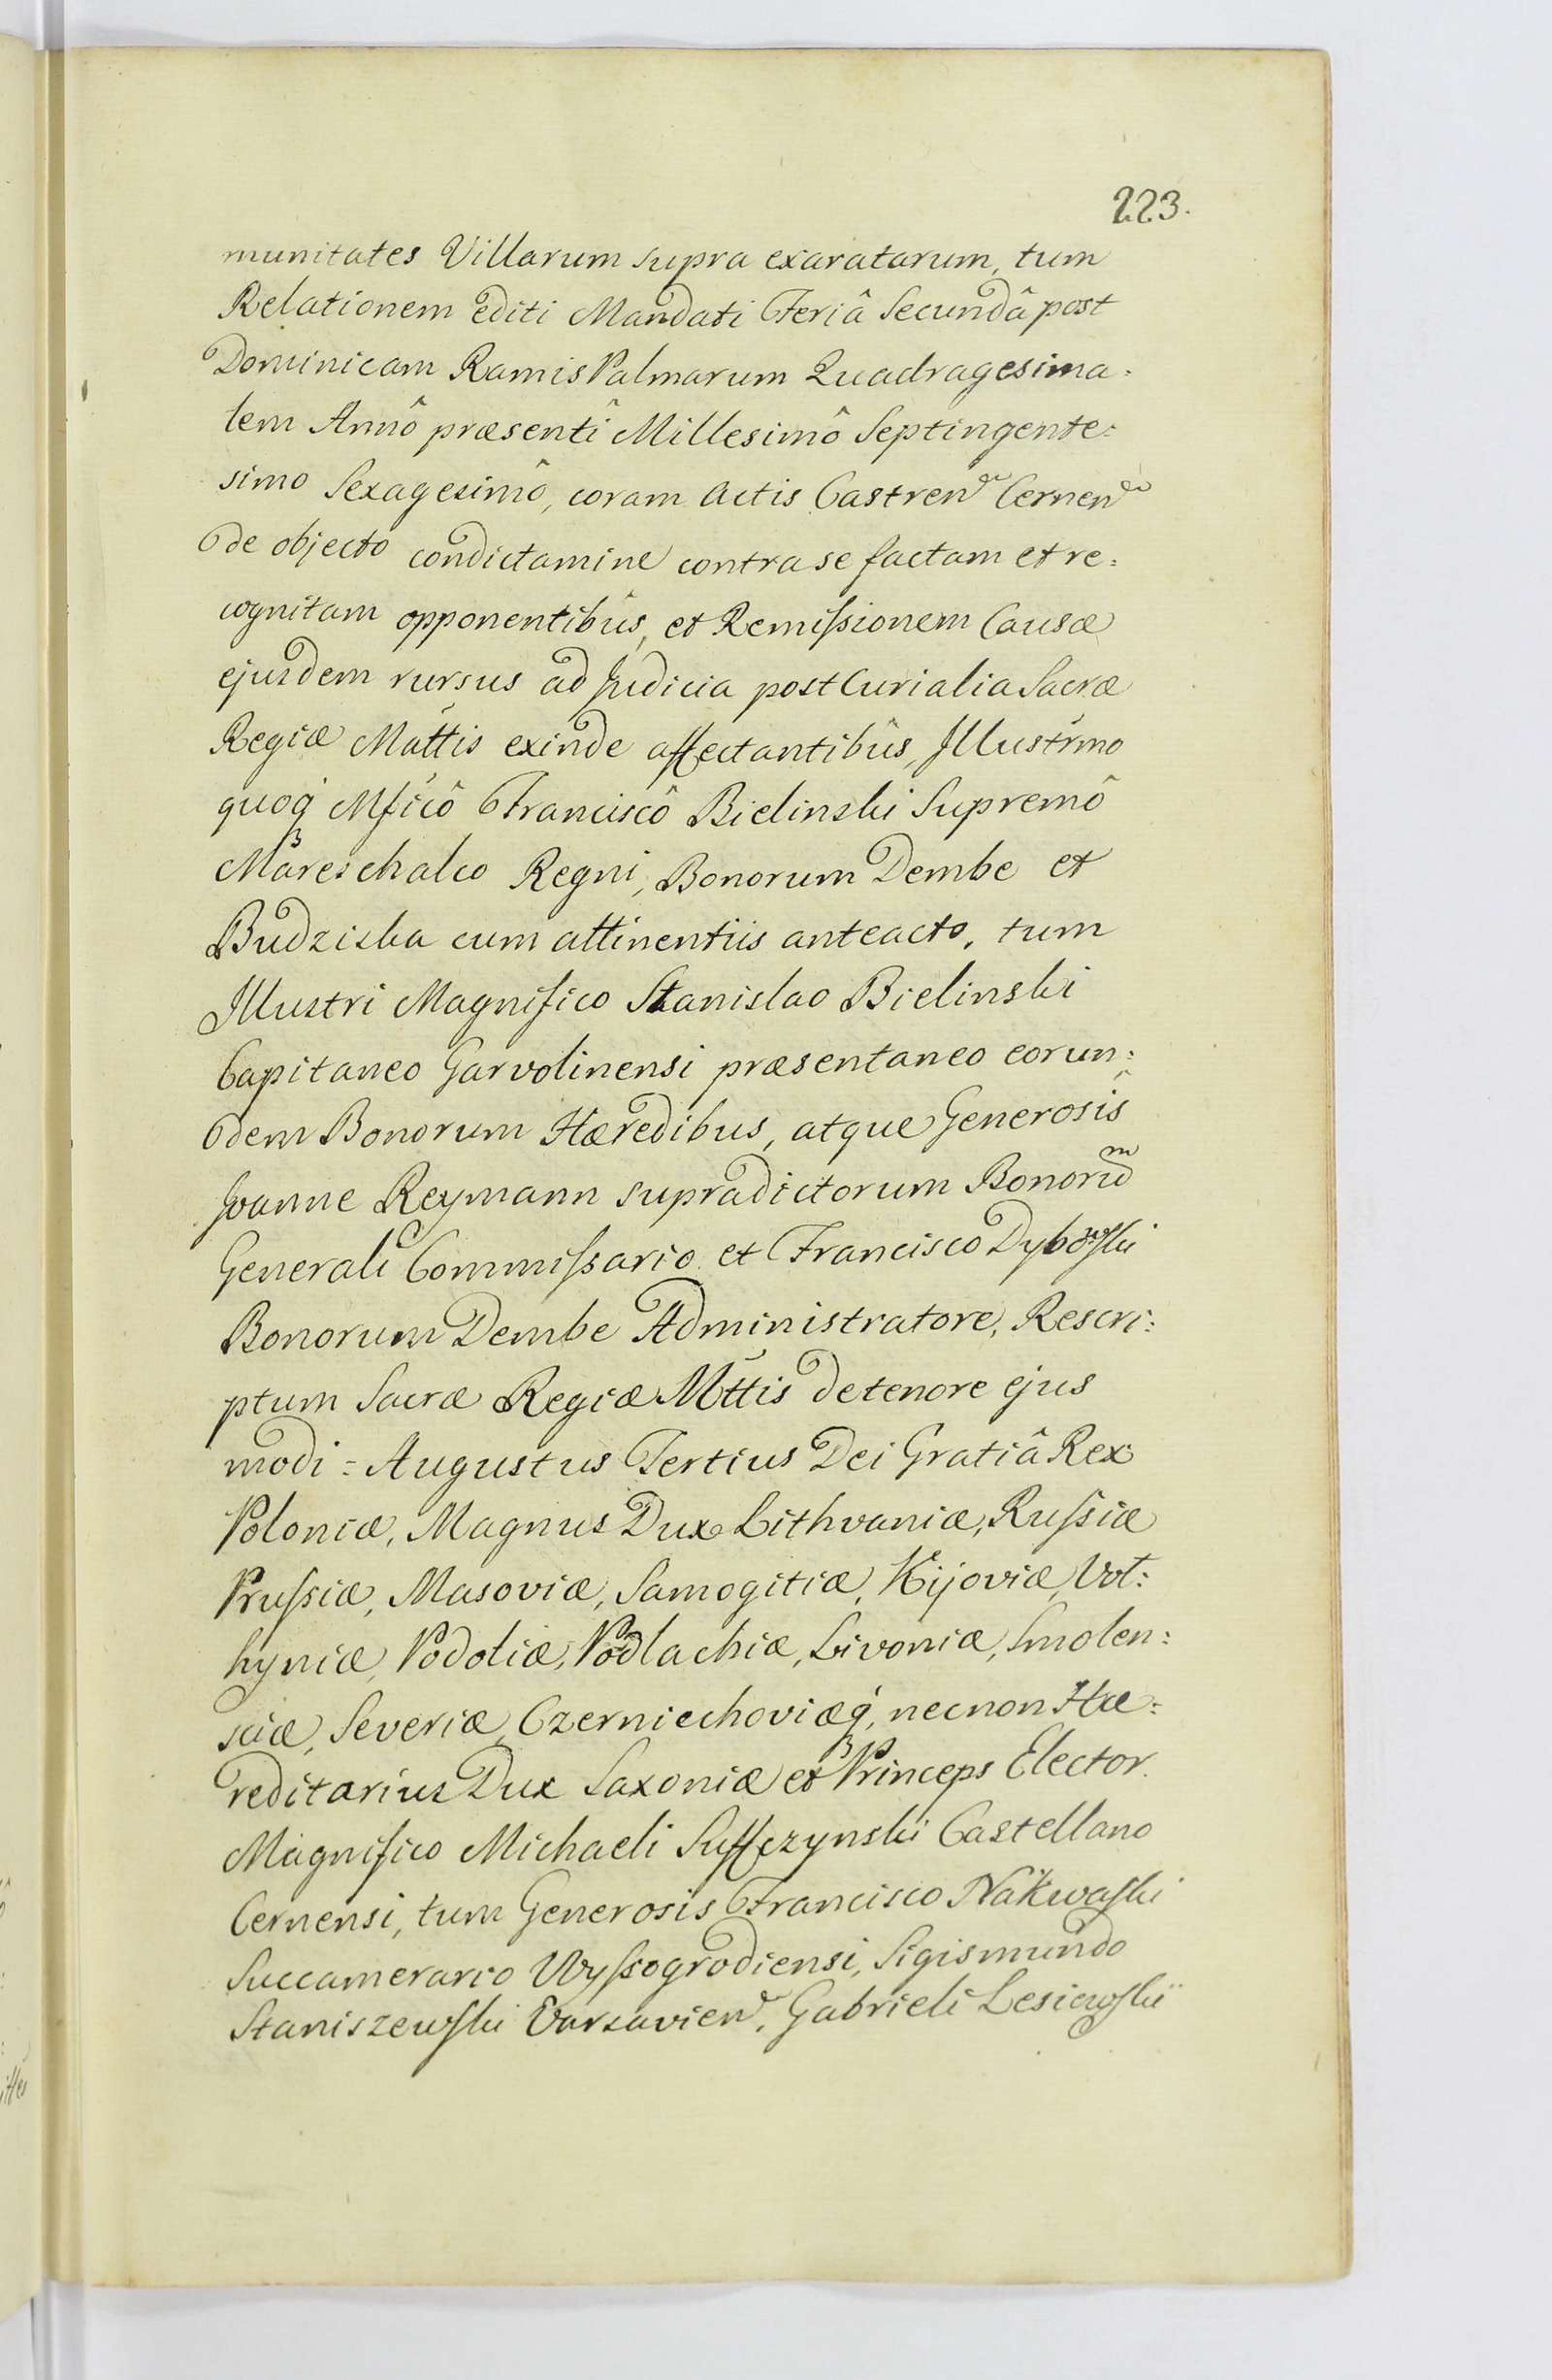 223.
munitates Villarum supra exaratarum, tum
Relationem editi Mandati Feriâ Secundâ post
Dominicam Ramis Palmarum Quadragesima:
lem Annô præsenti Millesimô Septingente:
simo Sexagesimô, coram Actis Castren Cernen
de objecto condictamine contra se factam et re:
cognitam opponentibûs, et Remißionem Causæ
ejusdem rursus ad Judicia post Curialia Sacræ
Regiæ Mattis exinde affectantibûs, Illustrmo
quoq Mficô Franciscô Bielinski Supremô
Mareschalco Regni, Bonorum Dembe et
Budziska cum attinentiis anteacto, tum
Illustri Magnifico Stanislao Bielinski
Capitaneo Garvolinensi præsentaneo eorun:
dem Bonorum Hæredibus, atque Generosîs
Joanne Reymann supradictorum Bonorum
Generali Commißario et Francisco Dybowski
Bonorum Dembe Administratore, Rescri:
ptum Sacræ Regiæ Mttis de tenore ejus
modi = Augustus Tertius Dei Gratiâ Rex
Poloniæ, Magnus Dux Lithvaniæ, Rußiæ
Prußiæ, Masoviæ, Samogitiæ, Kijoviæ, Vol:
hyniæ, Podoliæ, Podlachiæ, Livoniæ, Smolen:
sciæ, Severiæ, Czerniechoviæq, necnon Hæ:
reditarius Dux Saxoniæ et Princeps Elector.
Magnifico Michaeli Suffczynski Castellano
Cernensi, tum Generosis Francisco Nakwaski
Succamerario Wyßogrodiensi, Sigismundo
Staniszewski Varsavien, Gabrieli Lesiewski